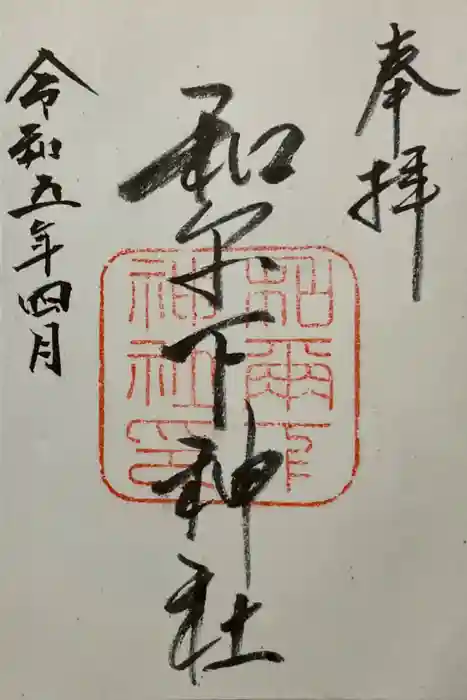 奉拝
和尓下神社
和爾下
神社印
令和五年四月